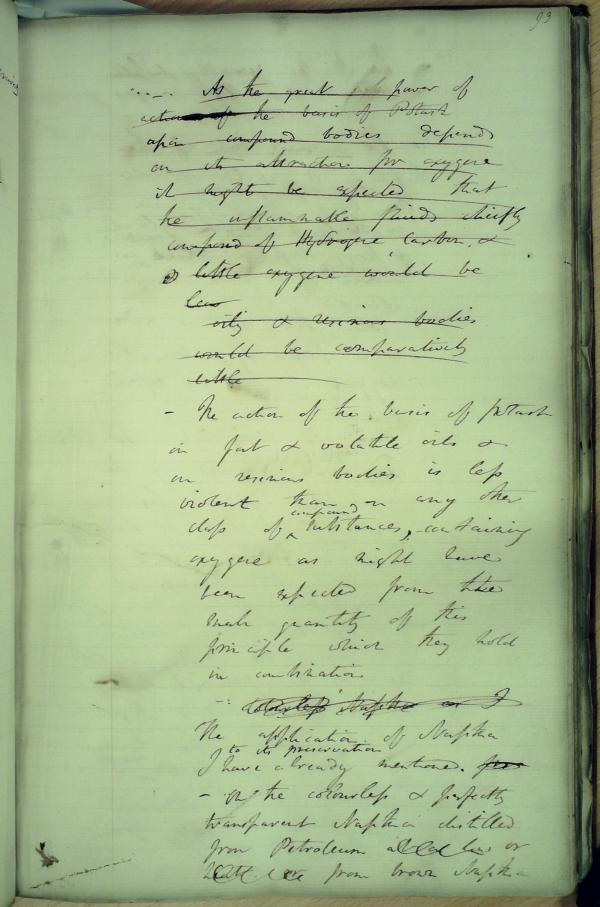 93
As the great power of
action of the basis of Potash
upon compound bodies depends
on its attraction for oxygene
it might be expected that
the inflammable fluids chiefly
composed of Hydrogene Carbon &
little oxygene would be
less
oily & resinous bodies
would be comparatively
little
- The action of the basis of potash
on fat & volatile oils &
on resinous bodies is less
violent than on any other
compound
class of substances, containing
oxygene as might have
been expected from the
small quantity of this
principle which they hold
in combination
colourless Naptha as I
The application of Naptha
to its preservation
I have already mentioned.
- On the colourless & perfectly
transparent Naptha distilled
from Petroleum or
from brown Naptha